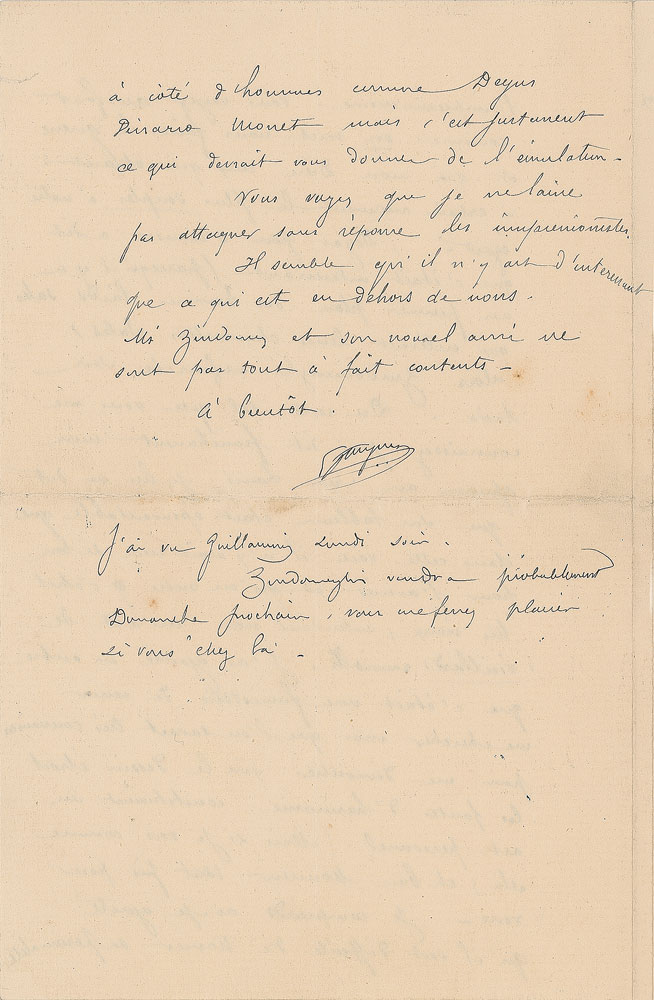 à côté d'hommes comme Degas
Pissarro Monet mais c'est justement
ce qui devrait vous donner de l'émulation -
Vous voyez que je ne laisse
pas attaquer sans réponse les impressionnistes.
Il semble qu'il n'y ait d'intéressant
que ce qui est en dehors de nous.
Mr Zandomeneghi et son nouvel ami ne
sont pas tout à fait contents -
à bientôt.
J'ai vu Guillaumin Lundi soir.
Zandomeneghi viendra probablement
Dimanche prochain, vous me ferez plaisir
si vous chez là -